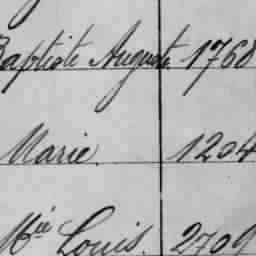 Baptiste Auguste 1768
Marie. 1204
Mie Louis. 2709